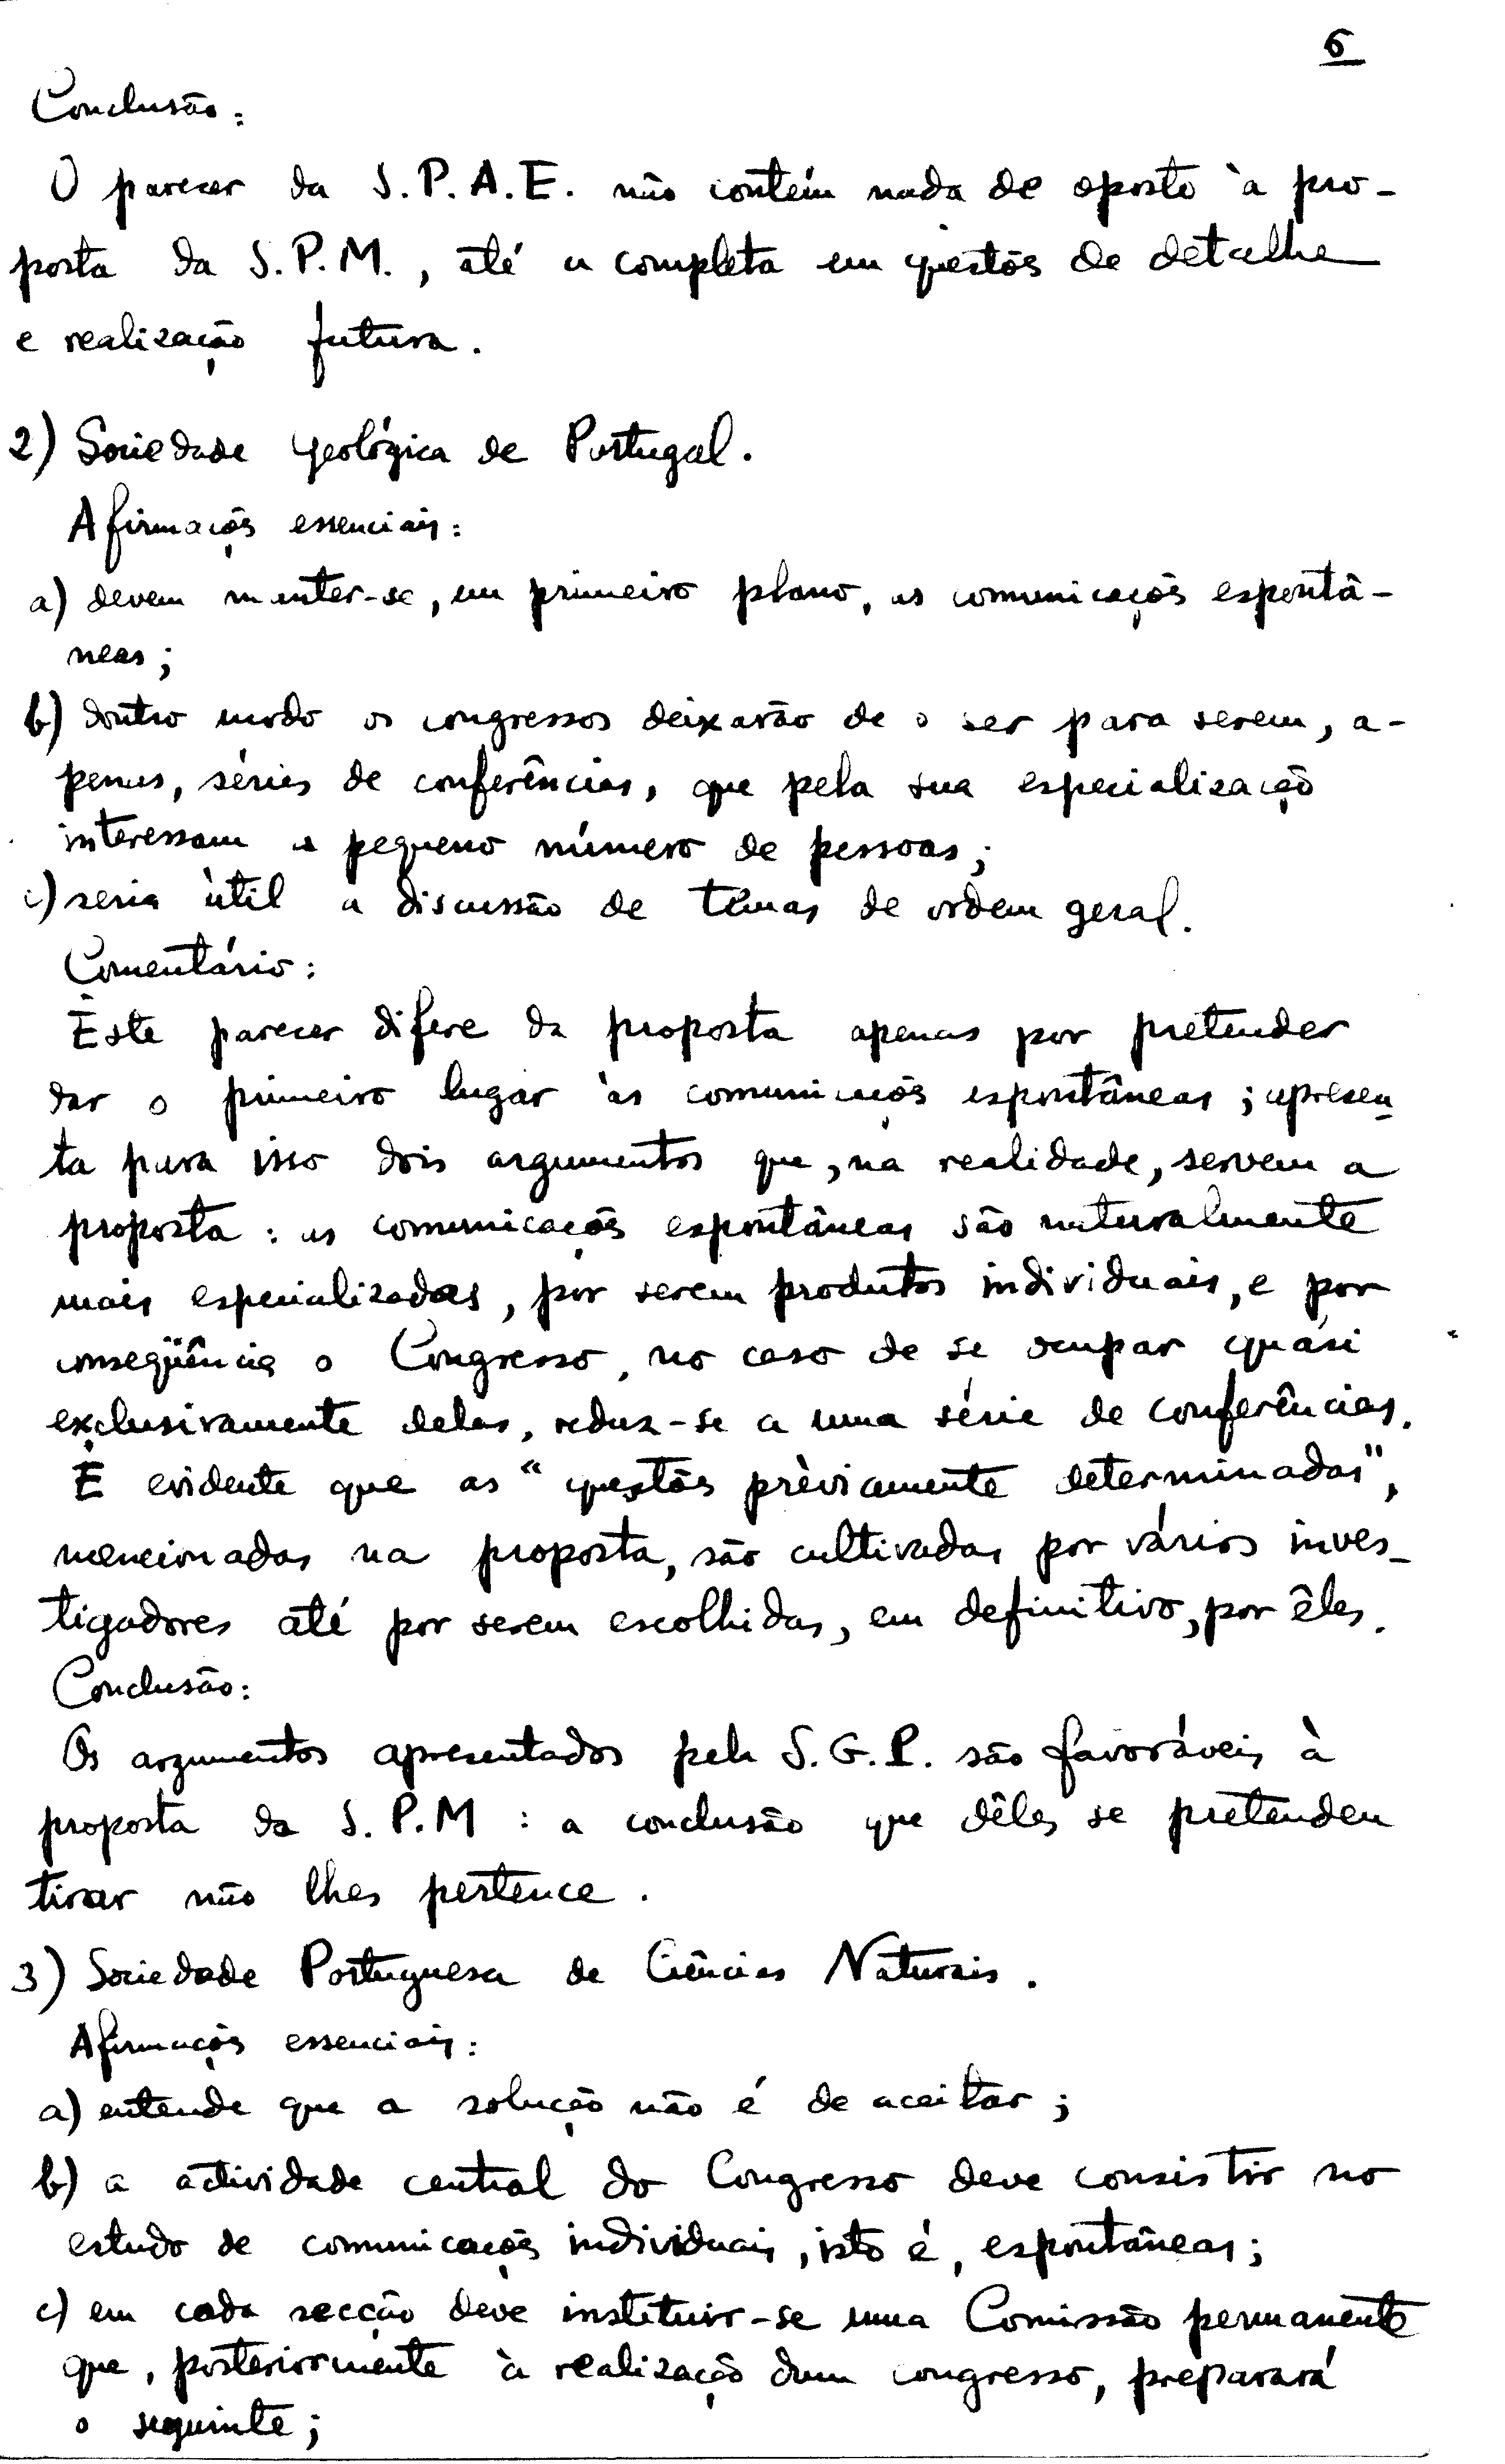 6
Conclusão:
O parecer da S.P.A.E. não contém nada de oposto à pro-
posta da S.P.M., até a completa em questões de detalhe
e realização futura.
2) Sociedade Geológica de Portugal.
Afirmações essenciais:
a) devem manter-se, em primeiro plano, as comunicações espontâ-
neas;
b) doutro modo os congressos deixarão de o ser para serem, a-
penas, séries de conferências, que pela sua especialização
interessam a pequeno número de pessoas;
c) seria útil a discussão de temas de ordem geral.
Comentário:
Êste parecer difere da proposta apenas por pretender
dar o primeiro lugar às comunicações espontâneas; apresen-
ta para isso dois argumentos que, na realidade, servem a
proposta: as comunicações espontâneas são naturalmente
mais especializadas, por serem produtos individuais, e por
conseqüência o Congresso, no caso de se ocupar quási
exclusivamente delas, reduz-se a uma série de conferências.
É evidente que as "questões prèviamente determinadas",
mencionadas na proposta, são cultivadas por vários inves-
tigadores até por serem escolhidas, em definitivo, por êles.
Conclusão:
Os argumentos apresentados pela S.G.P. são favoráveis à
proposta da S.P.M: a conclusão que dêles se pretendeu
tirar não lhes pertence.
3) Sociedade Portuguesa de Ciências Naturais.
Afirmações essenciais:
a) entende que a solução não é de aceitar;
b) a actividade central do Congresso deve consistir no
estudo de comunicações individuais, isto é, espontâneas;
c) em cada secção deve instituir-se uma Comissão permanente
que, posteriormente à realização dum congresso, preparará
o seguinte;